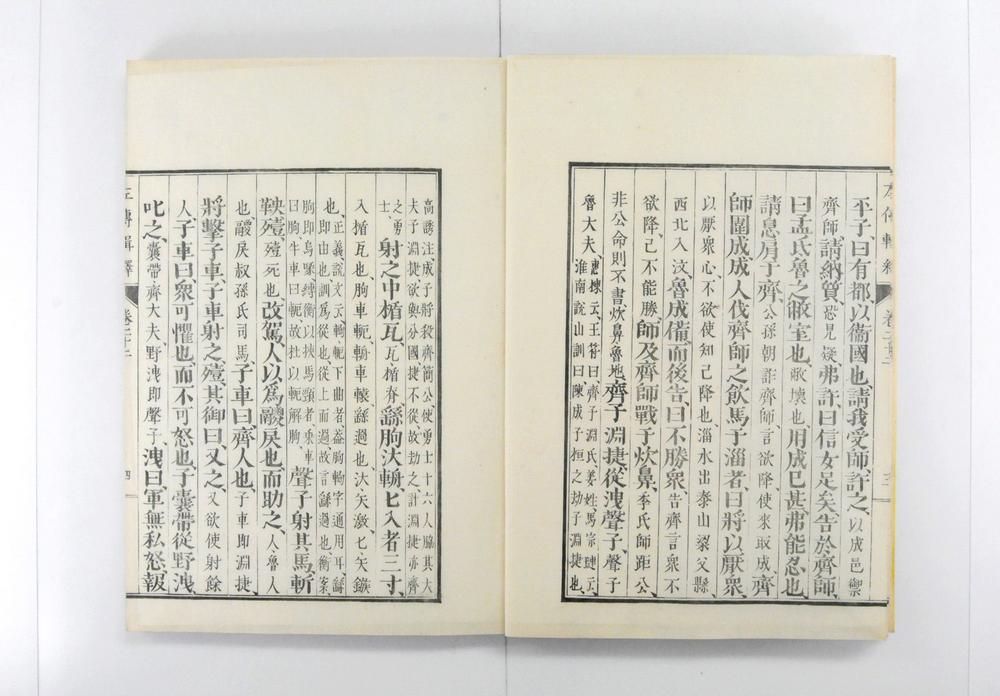 平子曰有都、以衞國也、請我受師、許之、以成邑禦
齊師、請納質、恐見疑弗許曰信女足矣告於齊師、
曰孟氏魯之敝室也、敝壞也、用成已甚、弗能忍也、
請息肩于齊、公孫朝詐齊師、言欲降使來取成、齊
師圍成、成人伐齊師之飲馬于淄者曰將以厭衆、
以厭衆心、不欲使知己降也、淄水出泰山梁父縣、
西北入汶、魯成備、而後告曰不勝衆、告齊言衆不
欲降己不能勝、師及齊師戰于炊鼻、季氏師距公、
非公命則不書、炊鼻魯地、齊子淵捷、從洩聲子、聲子
魯大夫、惠棟云、王符曰、齊子淵氏姜姓、馬宗璉云、
淮南說山訓曰陳成子桓之劫子淵捷也、
高誘注、成子將殺齊簡公使勇士十六人脇其大
夫子淵捷欲與分國捷不從故劫之計淵捷亦齊
之勇士、射之中楯瓦、瓦楯脊繇胊汏輈、匕入者三寸、
入楯瓦也、胊車軛、輈車轅、繇過也、汏矢激、匕矢鏃
也、正義、說文云、軥軛下曲者、葢胊軥字通用、耳、繇
即由也、訓爲從也、從上而過故言繇過也、衡案
胊即烏喙縛衡以挾馬頸者乘車
曰胊牛車曰軛故杜以軛解胊 聲子射其馬、斬
鞅殪、殪死也、改駕、人以爲鬷戾也、而助之、人魯人
也、鬷戾叔孫氏司馬、子車曰、齊人也、子車即淵捷、
將擊子車、子車射之、殪、其御曰、又之、又欲使射餘
人子車曰、衆可懼也、而不可怒也、子囊帶從野洩、
叱之、囊帶齊大夫、野洩即聲子、洩曰、軍無私怒、報
左傳輯釋 卷二十二 四